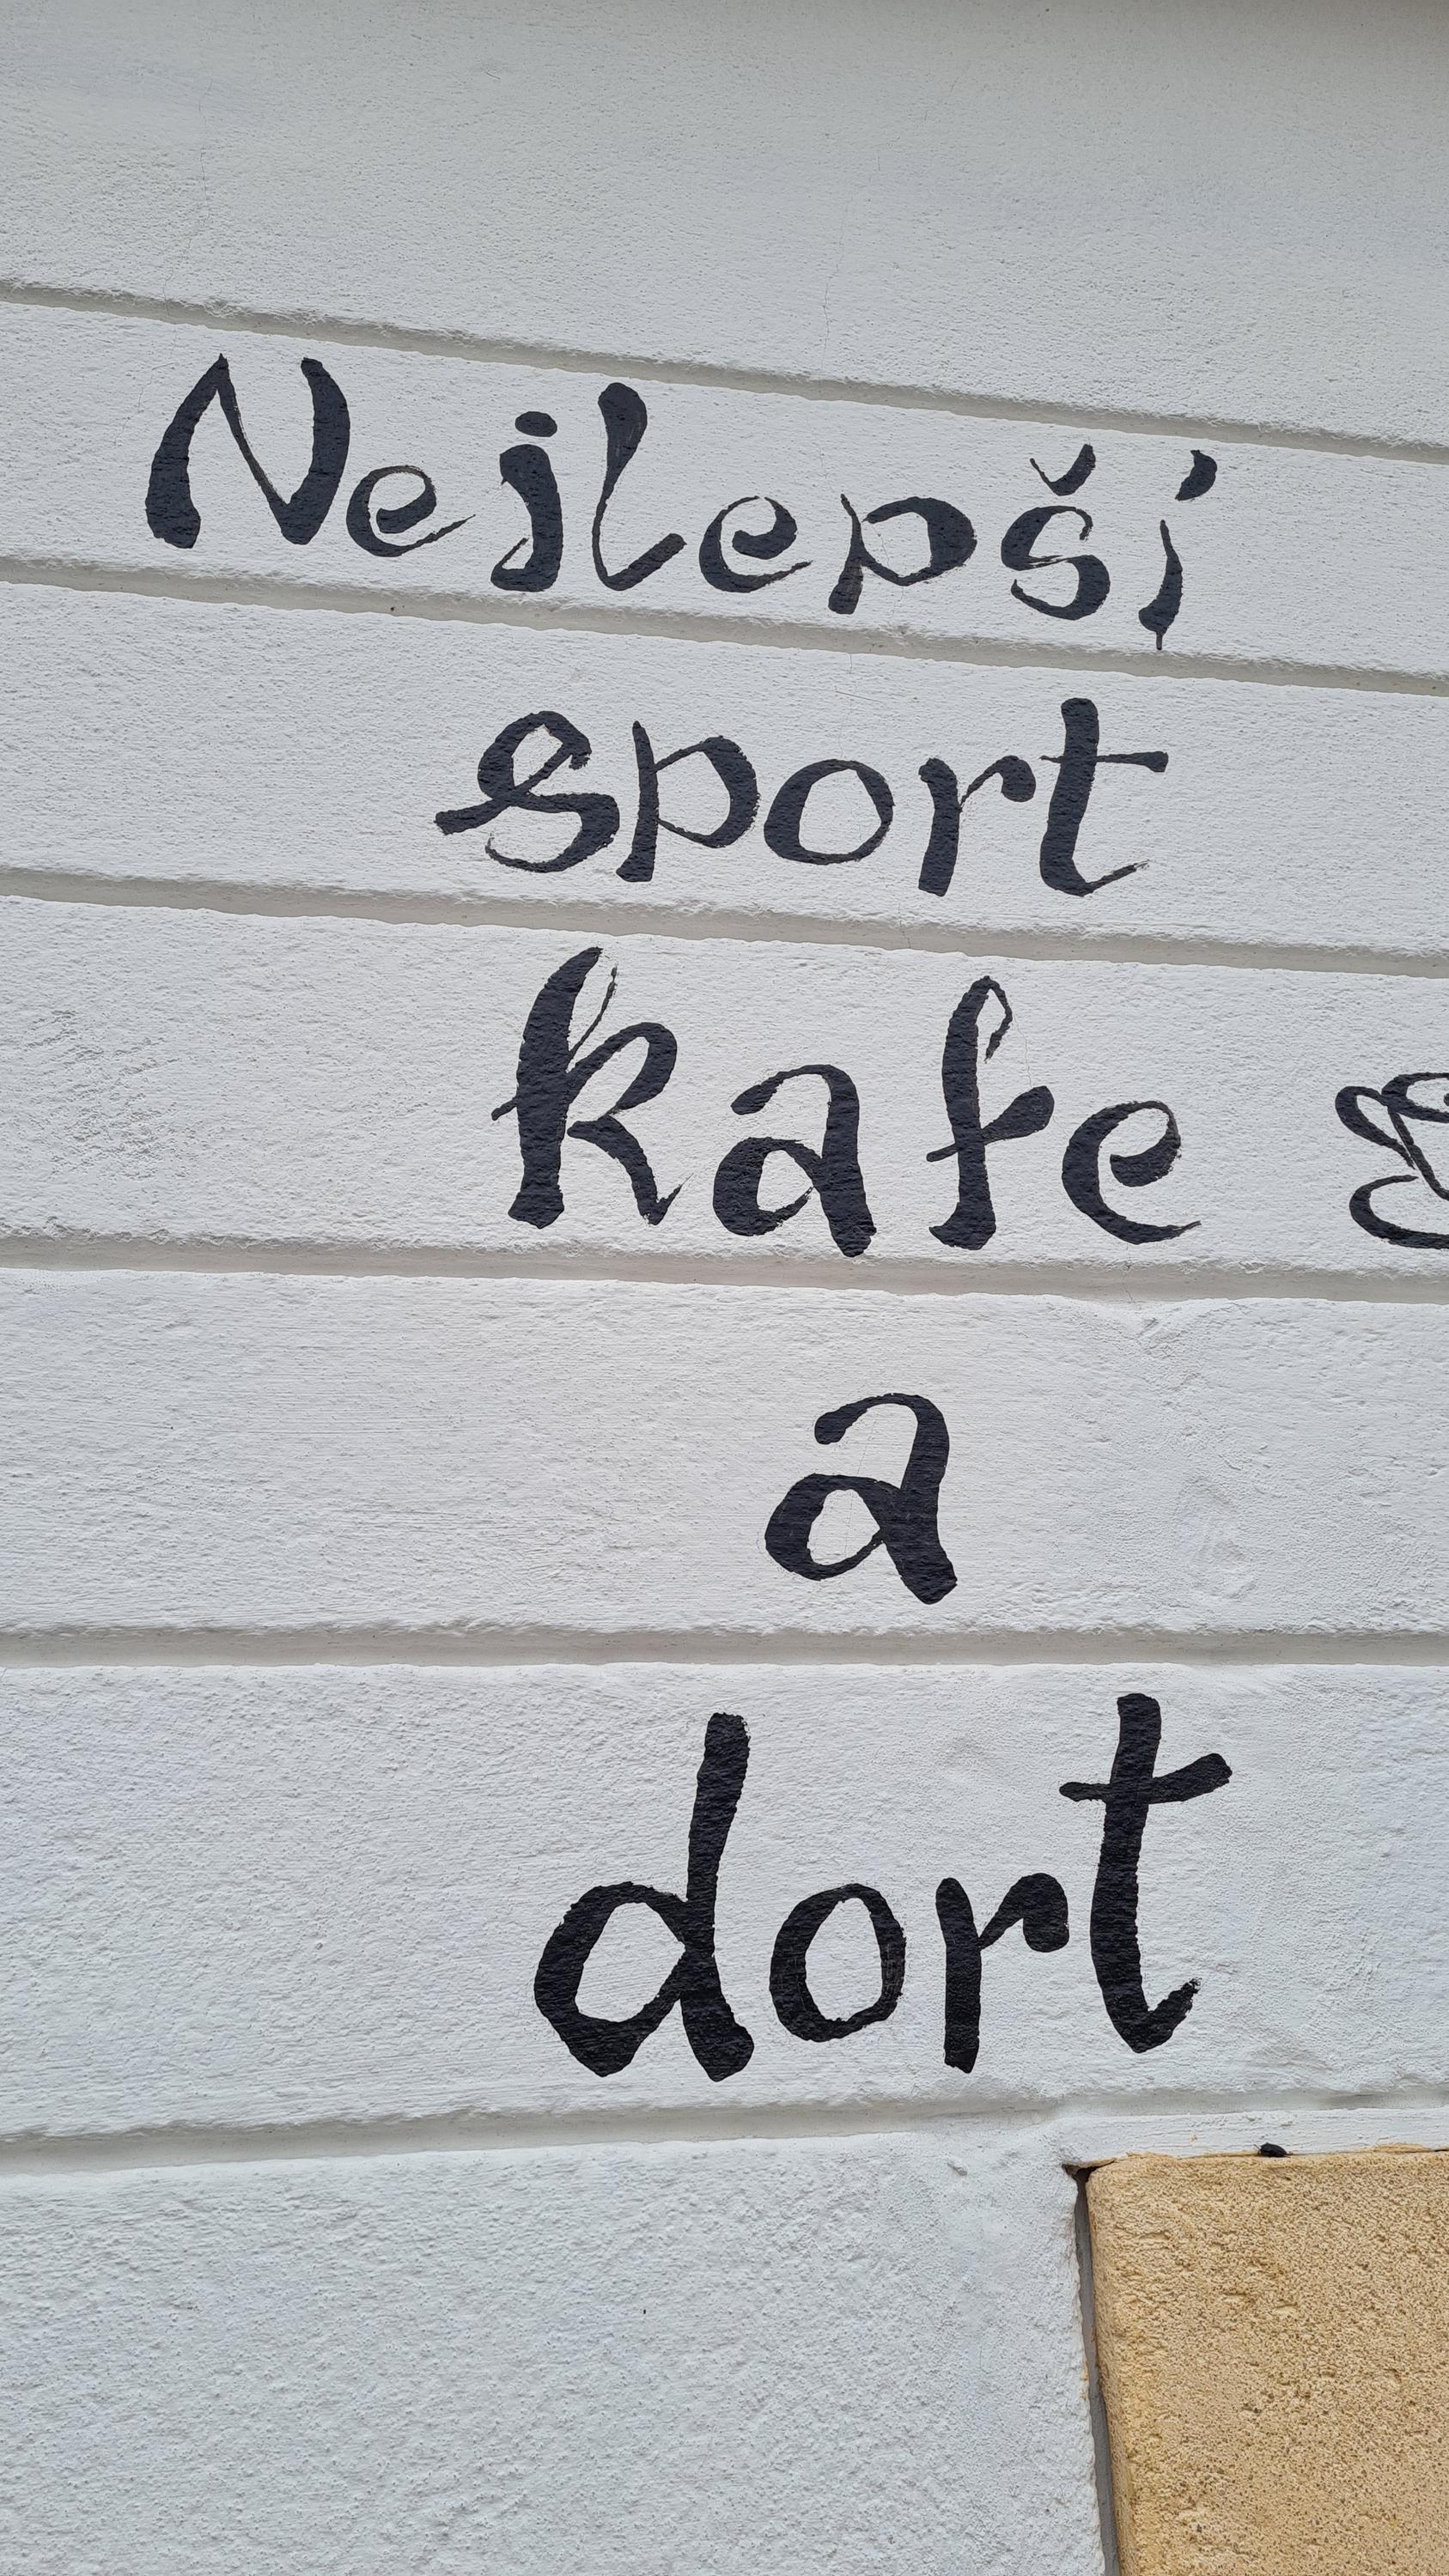 Nejlepší
sport
kafe
a
dort